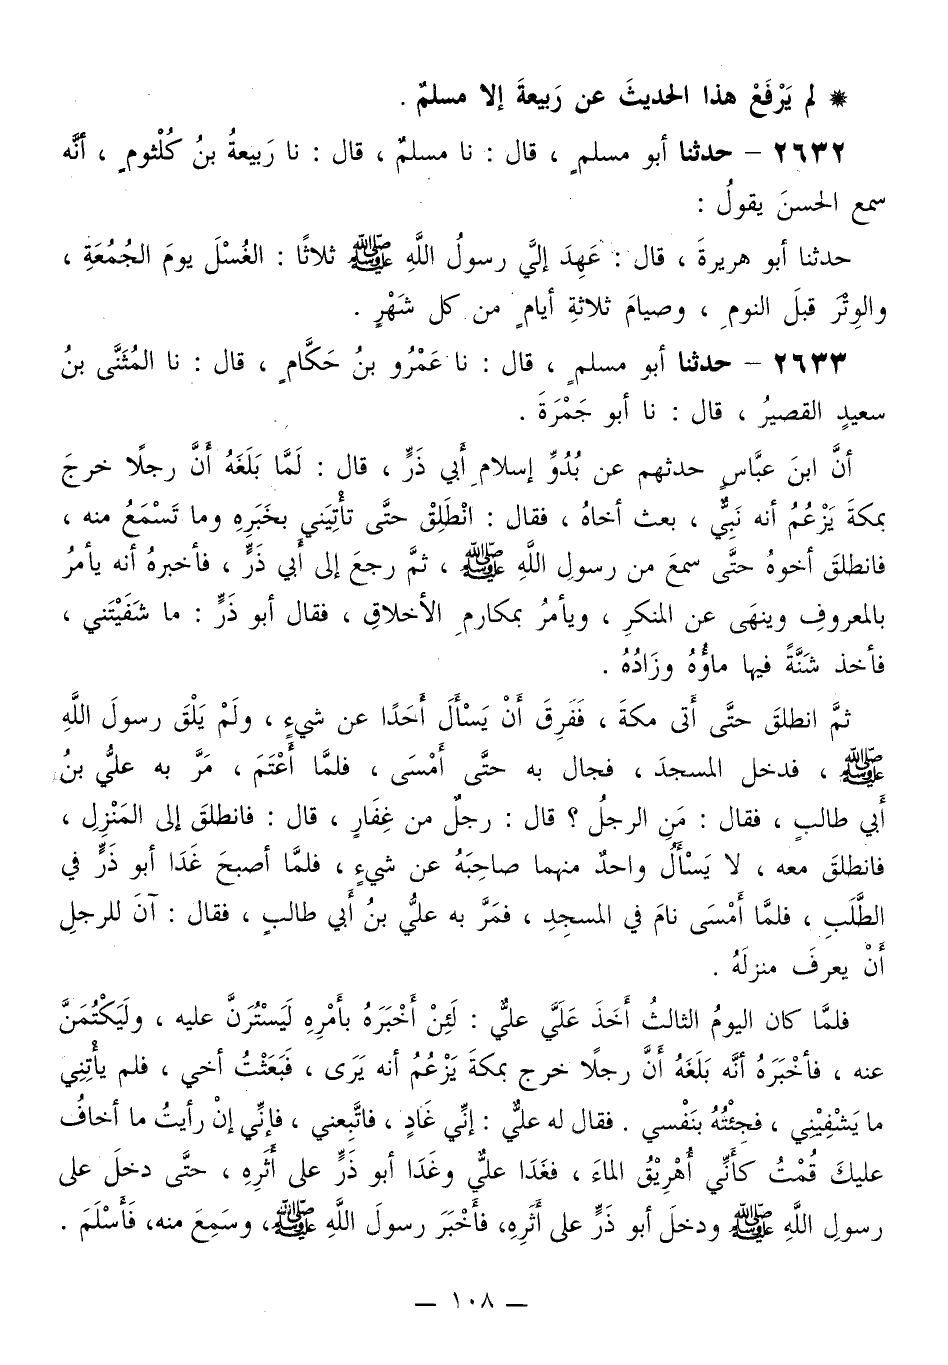 * لم يَرْفَعْ هذا الحديثَ عن رَبيعةَ إلا مسلمٌ .
٢٦٣٢ – حدثنا أبو مسلمٍ ، قال : نا مسلمٌ ، قال : نا رَبيعةُ بنُ كُلْثومٍ ، أنَّه
سمع الحسنَ يقولُ :
حدثنا أبو هريرةَ ، قال : عَهِدَ إليَّ رسولُ اللَّهِ ﷺ ثلاثًا : الغُسْلَ يومَ الجُمُعَةِ ،
والوِتْرَ قبلَ النومِ ، وصيامَ ثلاثةِ أيامٍ من كل شَهْرٍ .
٢٦٣٣ – حدثنا أبو مسلمٍ ، قال : نا عَمْرُو بنُ حَكَّامٍ ، قال : نا المُثَنَّى بنُ
سعيدٍ القصيرُ ، قال : نا أبو جَمْرَةَ .
أنَّ ابنَ عبَّاسٍ حدثهم عن بُدُوِّ إسلامِ أَبي ذَرٍّ ، قال : لَمَّا بَلَغَهُ أَنَّ رجلًا خرجَ
بمكةَ يَزْعُمُ أنه نَبِيٌّ ، بعث أخاهُ ، فقال : انْطَلِقْ حتَّى تأْتِيَني بخَبَرِهِ وما تَسْمَعُ منه ،
فانطلقَ أخوهُ حتَّى سمعَ من رسولِ اللَّهِ ﷺ ، ثمَّ رجعَ إلى أَبي ذَرٍّ ، فأخبرهُ أنه يأمرُ
بالمعروفِ وينهَى عن المنكرِ ، ويأمرُ بمكارمِ الأخلاقِ ، فقال أبو ذَرٍّ : ما شَفَيْتَني ،
فأخذ شَنَّةً فيها ماؤُهُ وزَادُهُ .
ثمَّ انطلقَ حتَّى أَتى مكةَ ، فَفَرِقَ أَنْ يَسْأَلَ أَحَدًا عن شيءٍ ، ولَمْ يَلْقَ رسولَ اللَّهِ
ﷺ ، فدخل المسجدَ ، فجال به حتَّى أَمْسَى ، فلمَّا أَعْتَمَ ، مَرَّ به عليُّ بنُ
أَبي طالبٍ ، فقال : مَنِ الرجلُ ؟ قال : رجلٌ من غِفَارٍ ، قال : فانطلقَ إلى المَنْزِلِ ،
فانطلقَ معه ، لا يَسْأَلُ واحدٌ منهما صاحِبَهُ عن شيءٍ ، فلمَّا أصبحَ غَدَا أبو ذَرٍّ في
الطَّلَبِ ، فلمَّا أَمْسَى نامَ في المسجدِ ، فمَرَّ به عليُّ بنُ أَبي طالبٍ ، فقال : آنَ للرجلِ
أَنْ يعرفَ منزلَهُ .
فلمَّا كان اليومُ الثالثُ أَخَذَ عَلَيَّ عليٌّ : لَئِنْ أَخْبَرَهُ بأَمْرِهِ لَيَسْتُرَنَّ عليه ، ولَيَكْتُمَنَّ
عنه ، فأخْبَرَهُ أنَّه بَلَغَهُ أَنَّ رجلًا خرج بمكةَ يَزْعُمُ أنه يَرَى ، فَبَعَثْتُ أخي ، فلم يأْتِنِي
ما يَشْفِيْنِي ، فجِئْتُهُ بنَفْسي . فقال له عليٌّ : إنِّي غَادٍ ، فاتَّبِعني ، فإنِّي إنْ رأيتُ ما أخافُ
عليكَ قُمْتُ كأَنِّي أُهْرِيْقُ الماءَ ، فغَدَا عليٌّ وغَدَا أبو ذَرٍّ على أَثَرِهِ ، حتَّى دخلَ على
رسولِ اللَّهِ ﷺ ودخلَ أبو ذَرٍّ على أَثَرِهِ، فأَخْبَرَ رسولَ اللَّهِ ﷺ، وسَمِعَ منه، فَأَسْلَمَ .
— ١٠٨ —